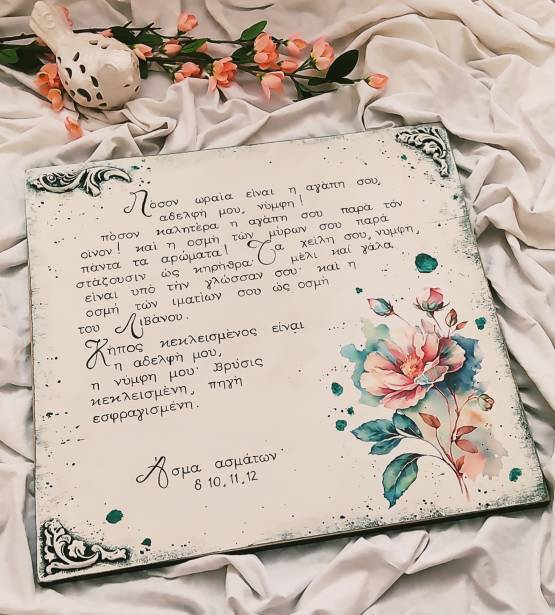 Πόσον ωραία είναι η αγάπη σου,
αδελφή μου, νύμφη!
πόσον καλητέρα η αγάπη σου παρά τόν
οίνον! καί η οσμή τών μύρων σου παρά
πάντα τα αρώματα! Τα χείλη σου, νυμφη,
στάζουσιν ώς κηρήθρα· μέλι καί γάλα
είναι υπό τήν γλώσσαν σου· καί η
οσμή τών ιματίων σου ώς οσμή
του Λιβάνου.
Κήπος κεκλεισμένος είναι
η αδελφή μου,
η νύμφη μου· βρύσις
κεκλεισμένη, πηγή
εσφραγισμένη.
Άσμα ασμάτων
8 10, 11, 12